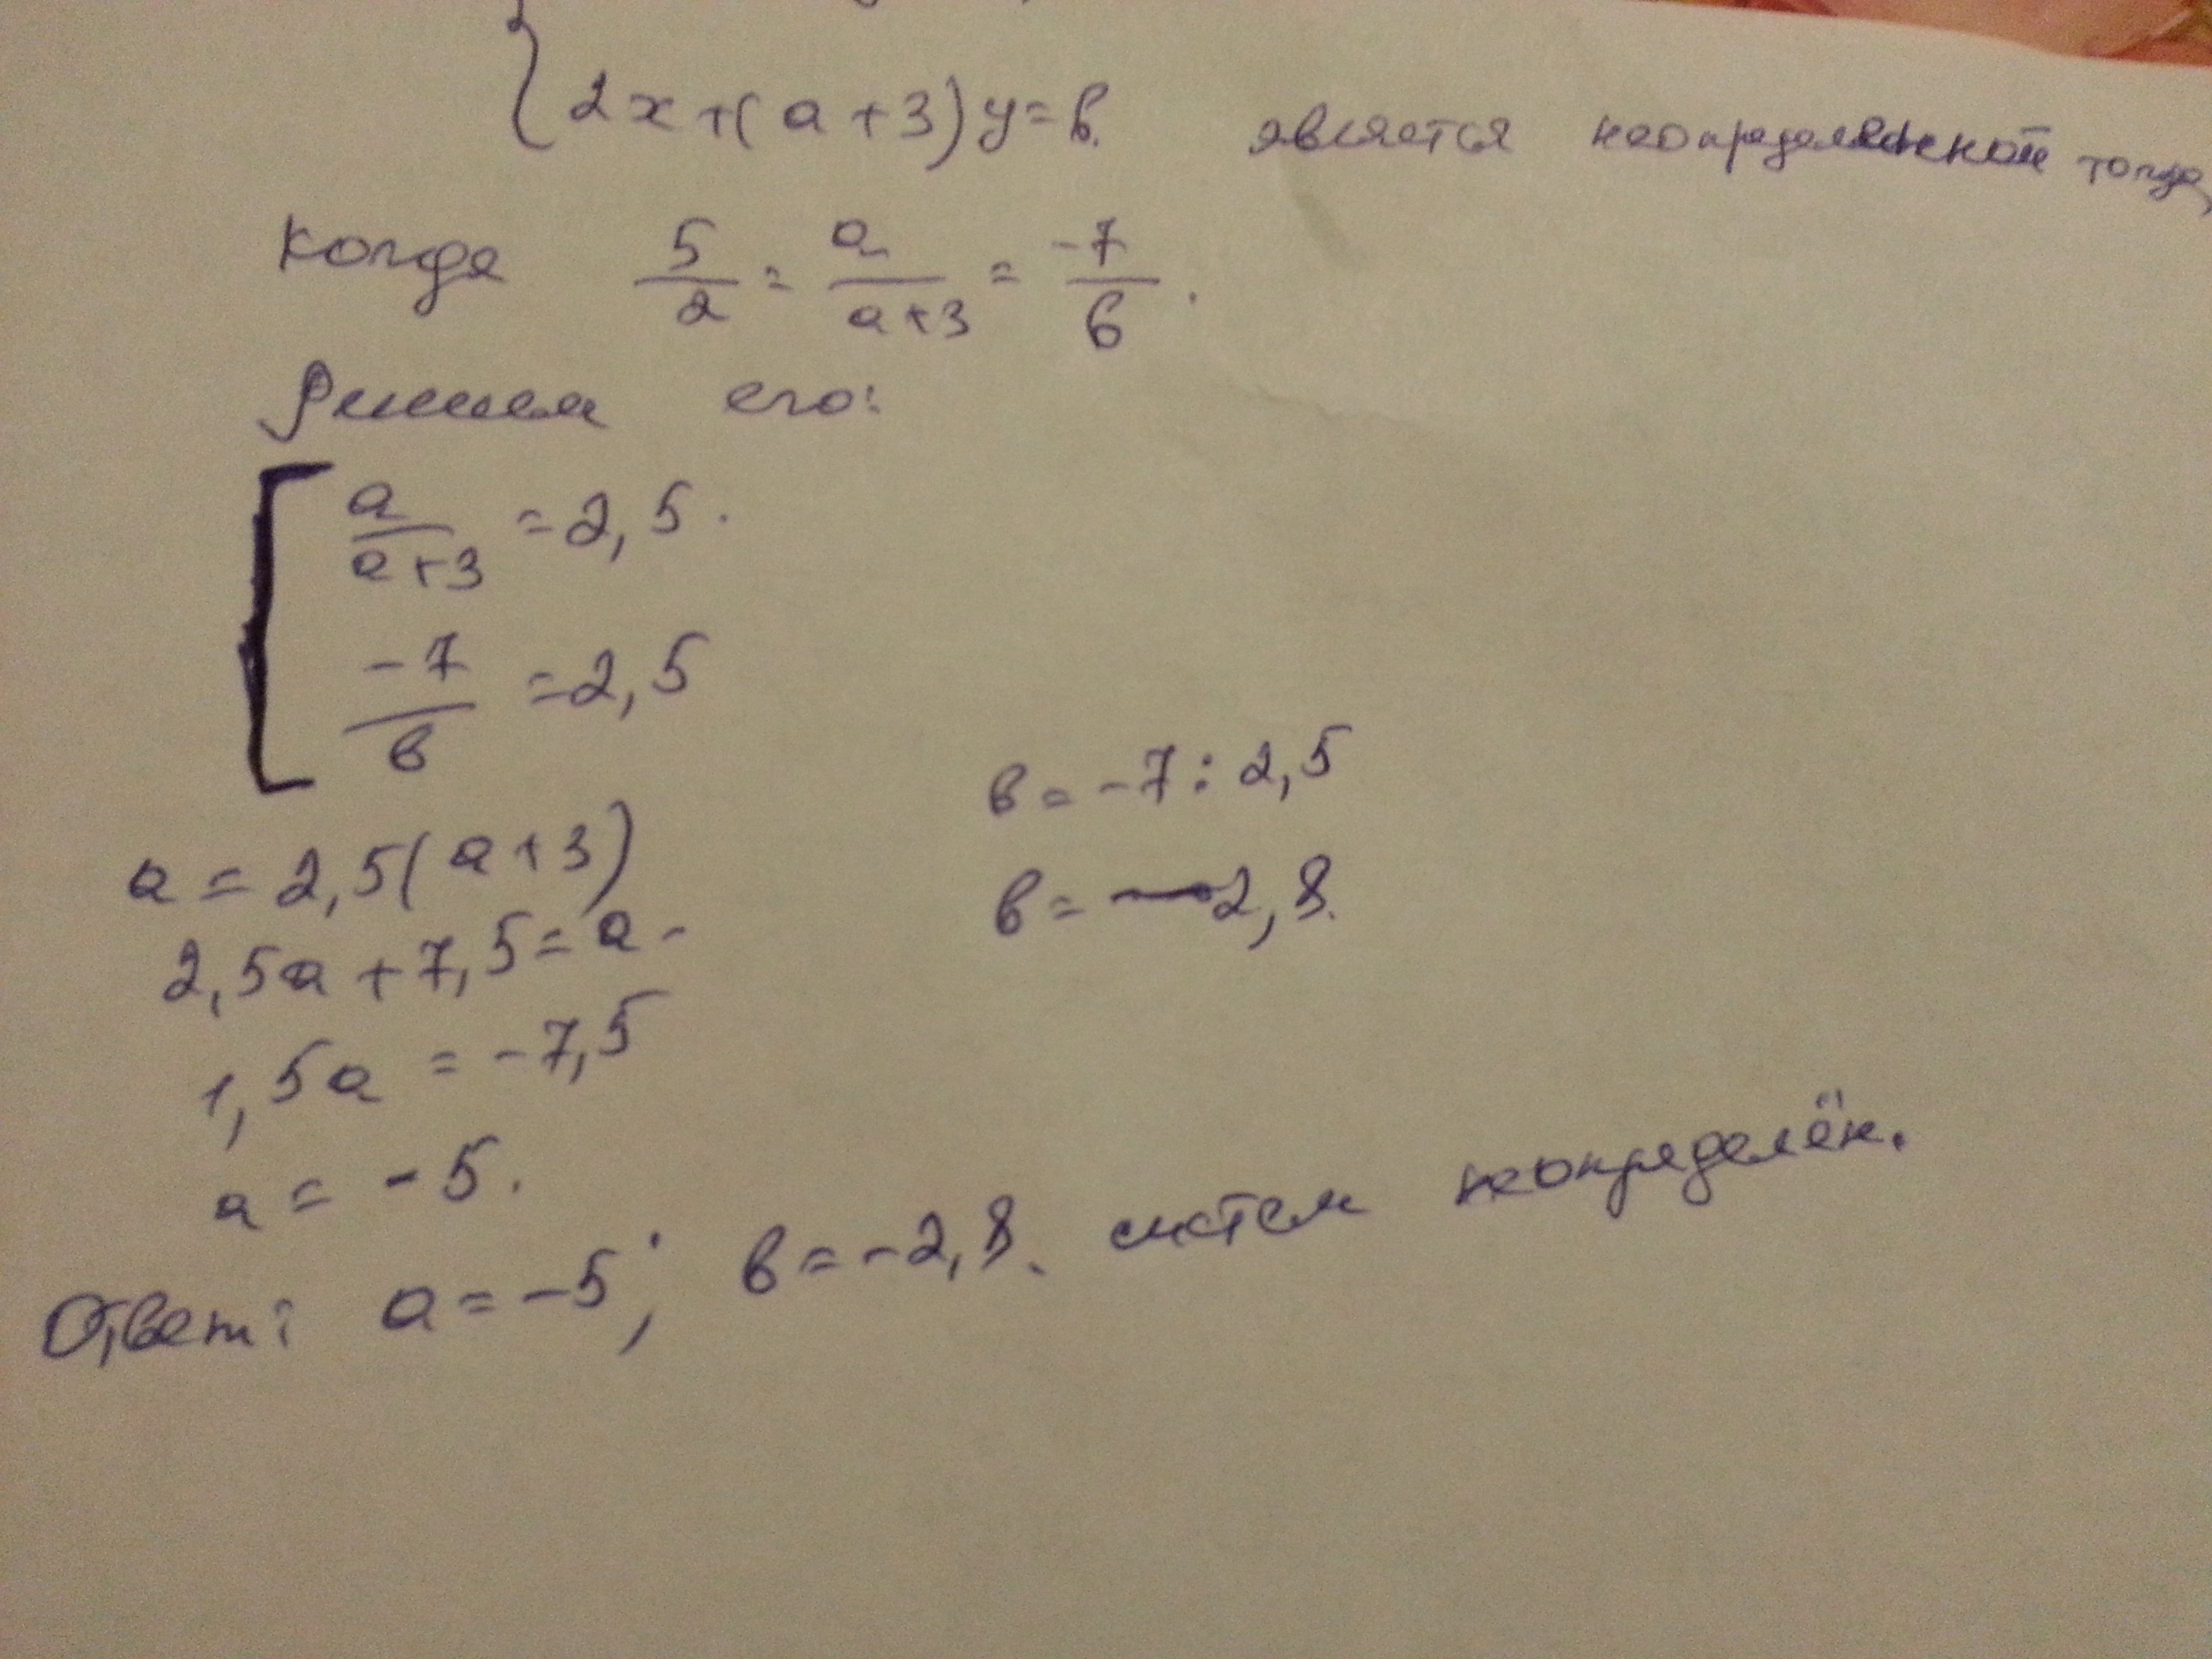 2x+(a+3)y=b. является неопределенной тогда,
когда 5/2 = a/a+3 = -7/b.
Решаем его:
a/a+3 = 2,5.
-7/b = 2,5
a = 2,5(a+3)
2,5a + 7,5 = a -
1,5a = -7,5
a = -5.
b = -7 : 2,5
b = -2,8.
Ответ: a = -5; b = -2,8. систем неопределён.